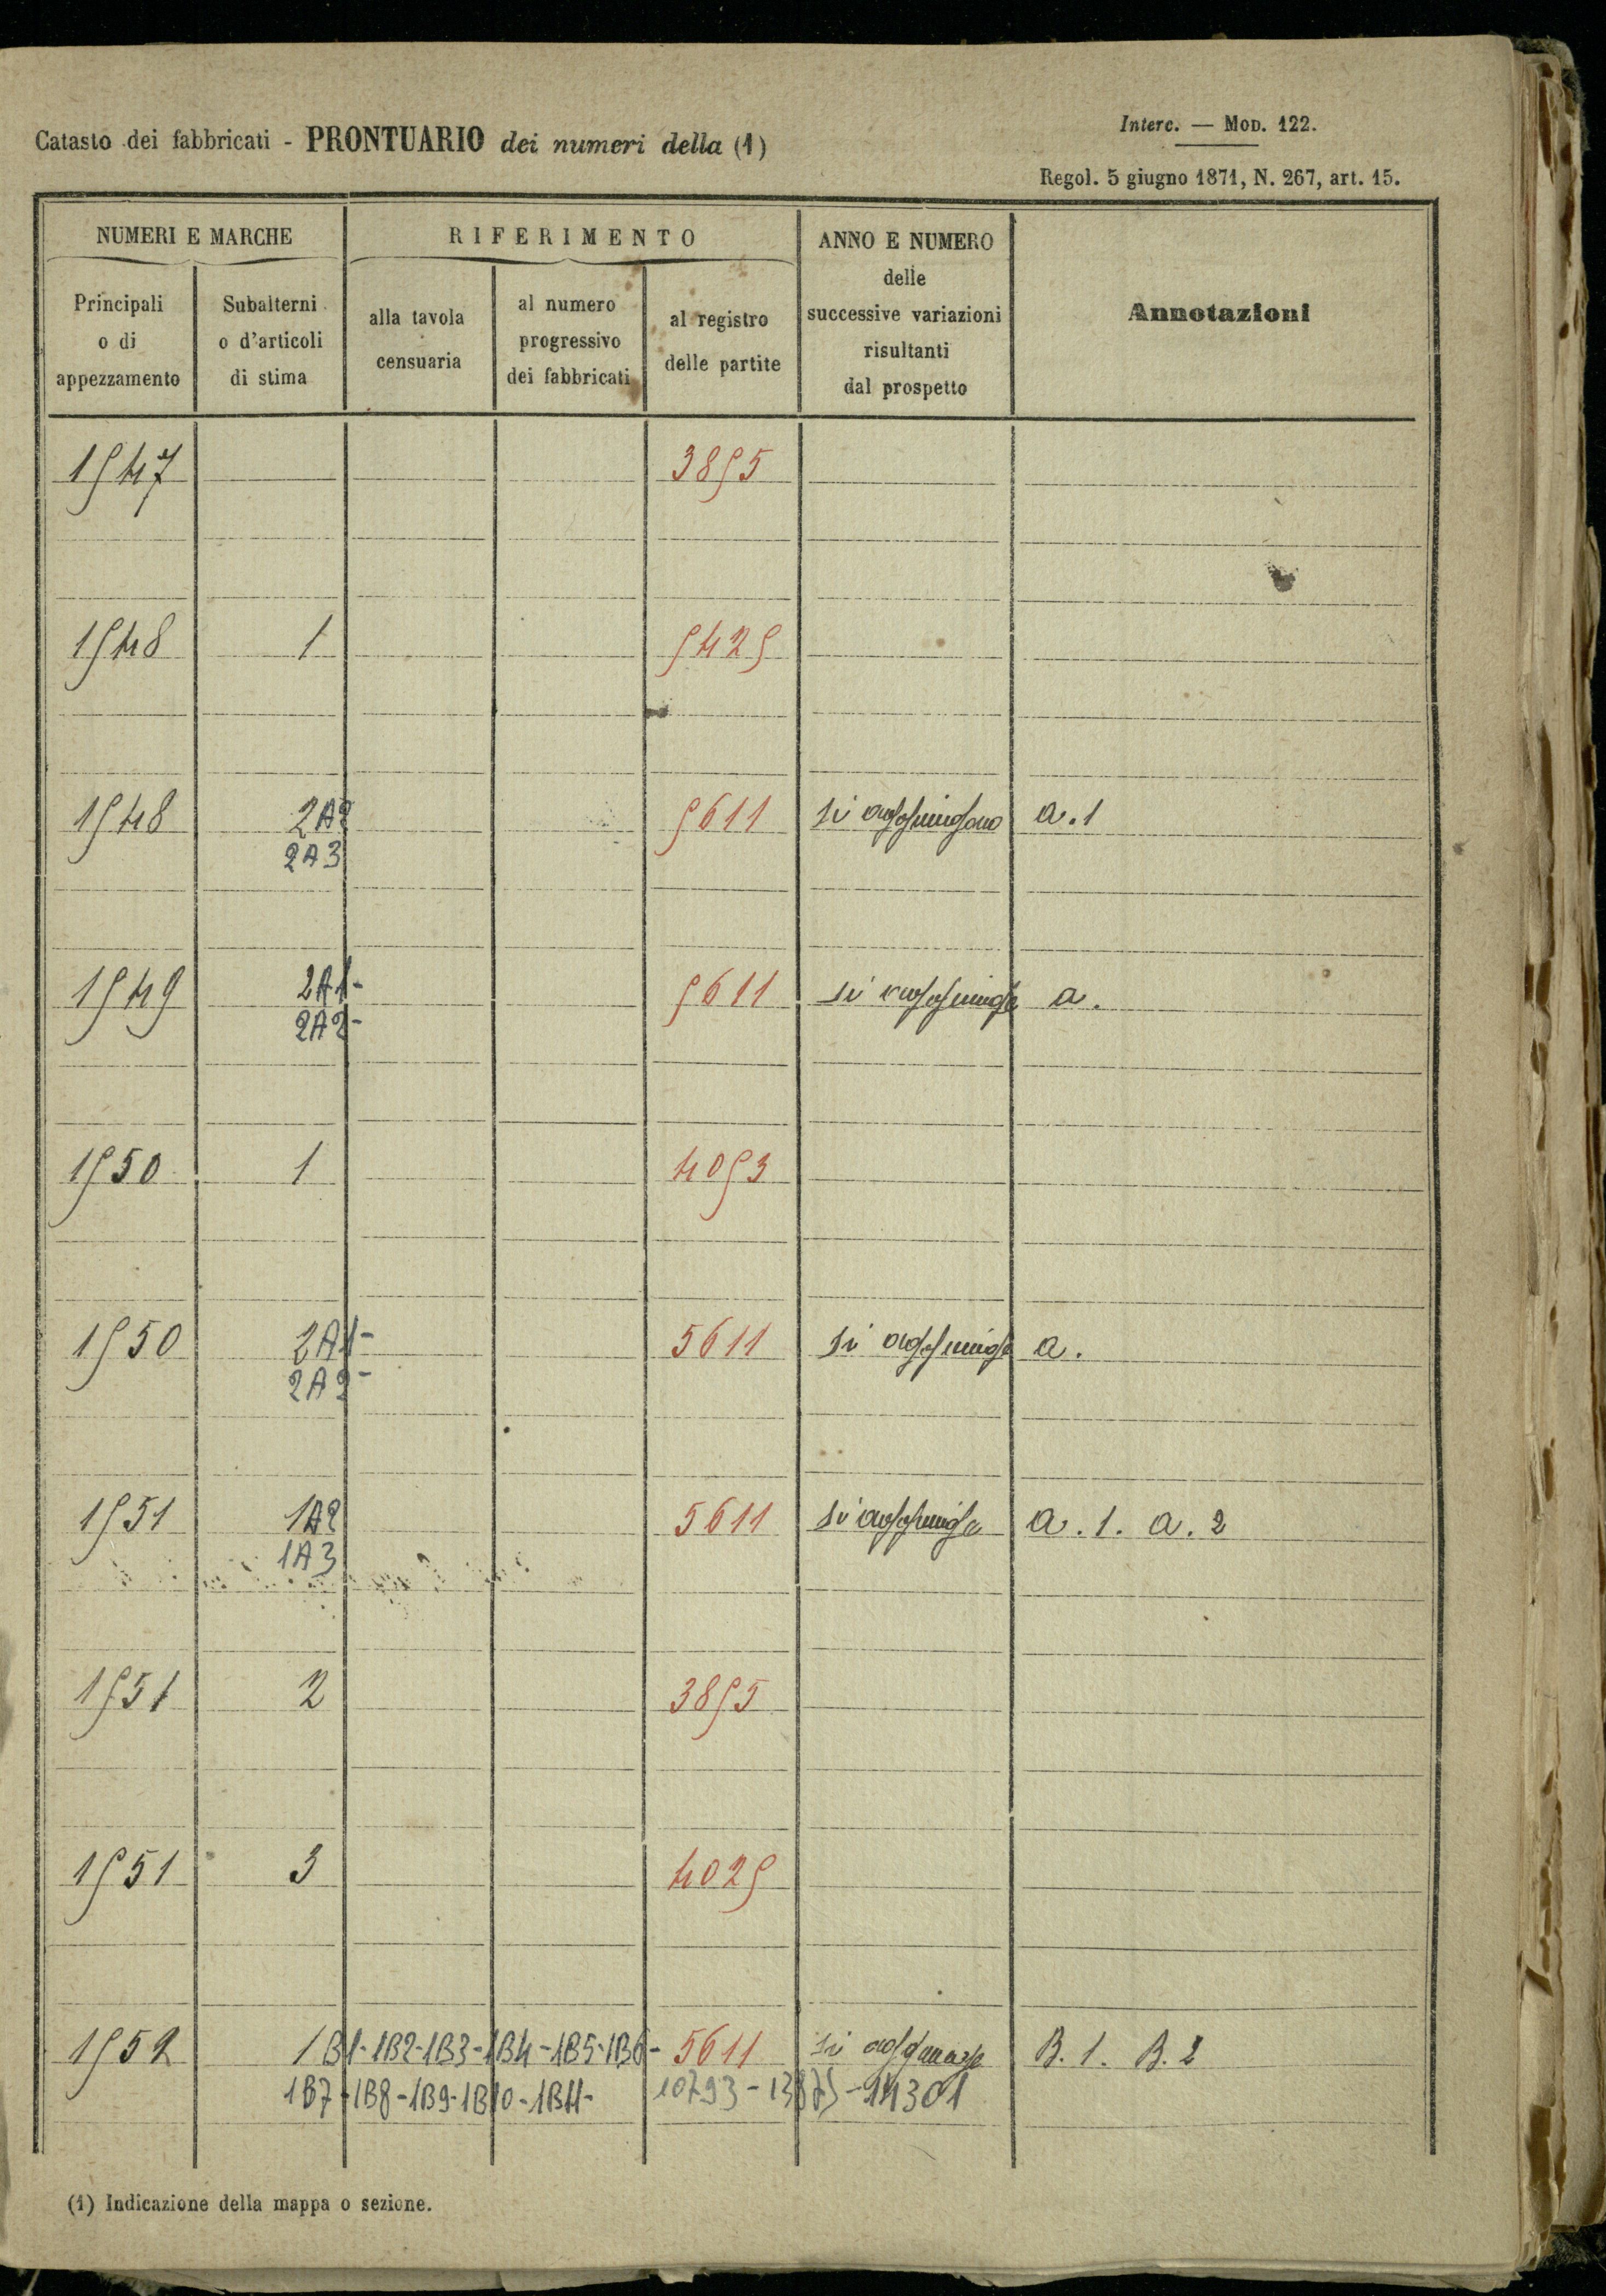 Catasto dei fabbricati - PRONTUARIO dei numeri della (1)
Interc. — MOD. 122.
Regol. 5 giugno 1871, N. 267, art. 15.
NUMERI E MARCHE
RIFERIMENTO
ANNO E NUMERO
delle
successive variazioni
risultanti
dal prospetto
Annotazioni
Principali
o di
appezzamento
Subalterni
o d'articoli
di stima
alla tavola
censuaria
al numero
progressivo
dei fabbricati
al registro
delle partite
1547 3855
1548 1 5425
1548 2A2 5611 si aggiungono a.1
2A3
1549 2A1- 5611 si aggiunge a.
2A2-
1550 1 4053
1550 2A1- 5611 si aggiunge a.
2A2-
1551 1A2 5611 si aggiunge a.1. a.2
1A3
1551 2 3855
1551 3 4025
1552 1B1-1B2-1B3-1B4-1B5-1B6- 5611 si aggiunge B.1. B.2
1B7-1B8-1B9-1B10-1B11- 10793-13875-14301
(1) Indicazione della mappa o sezione.